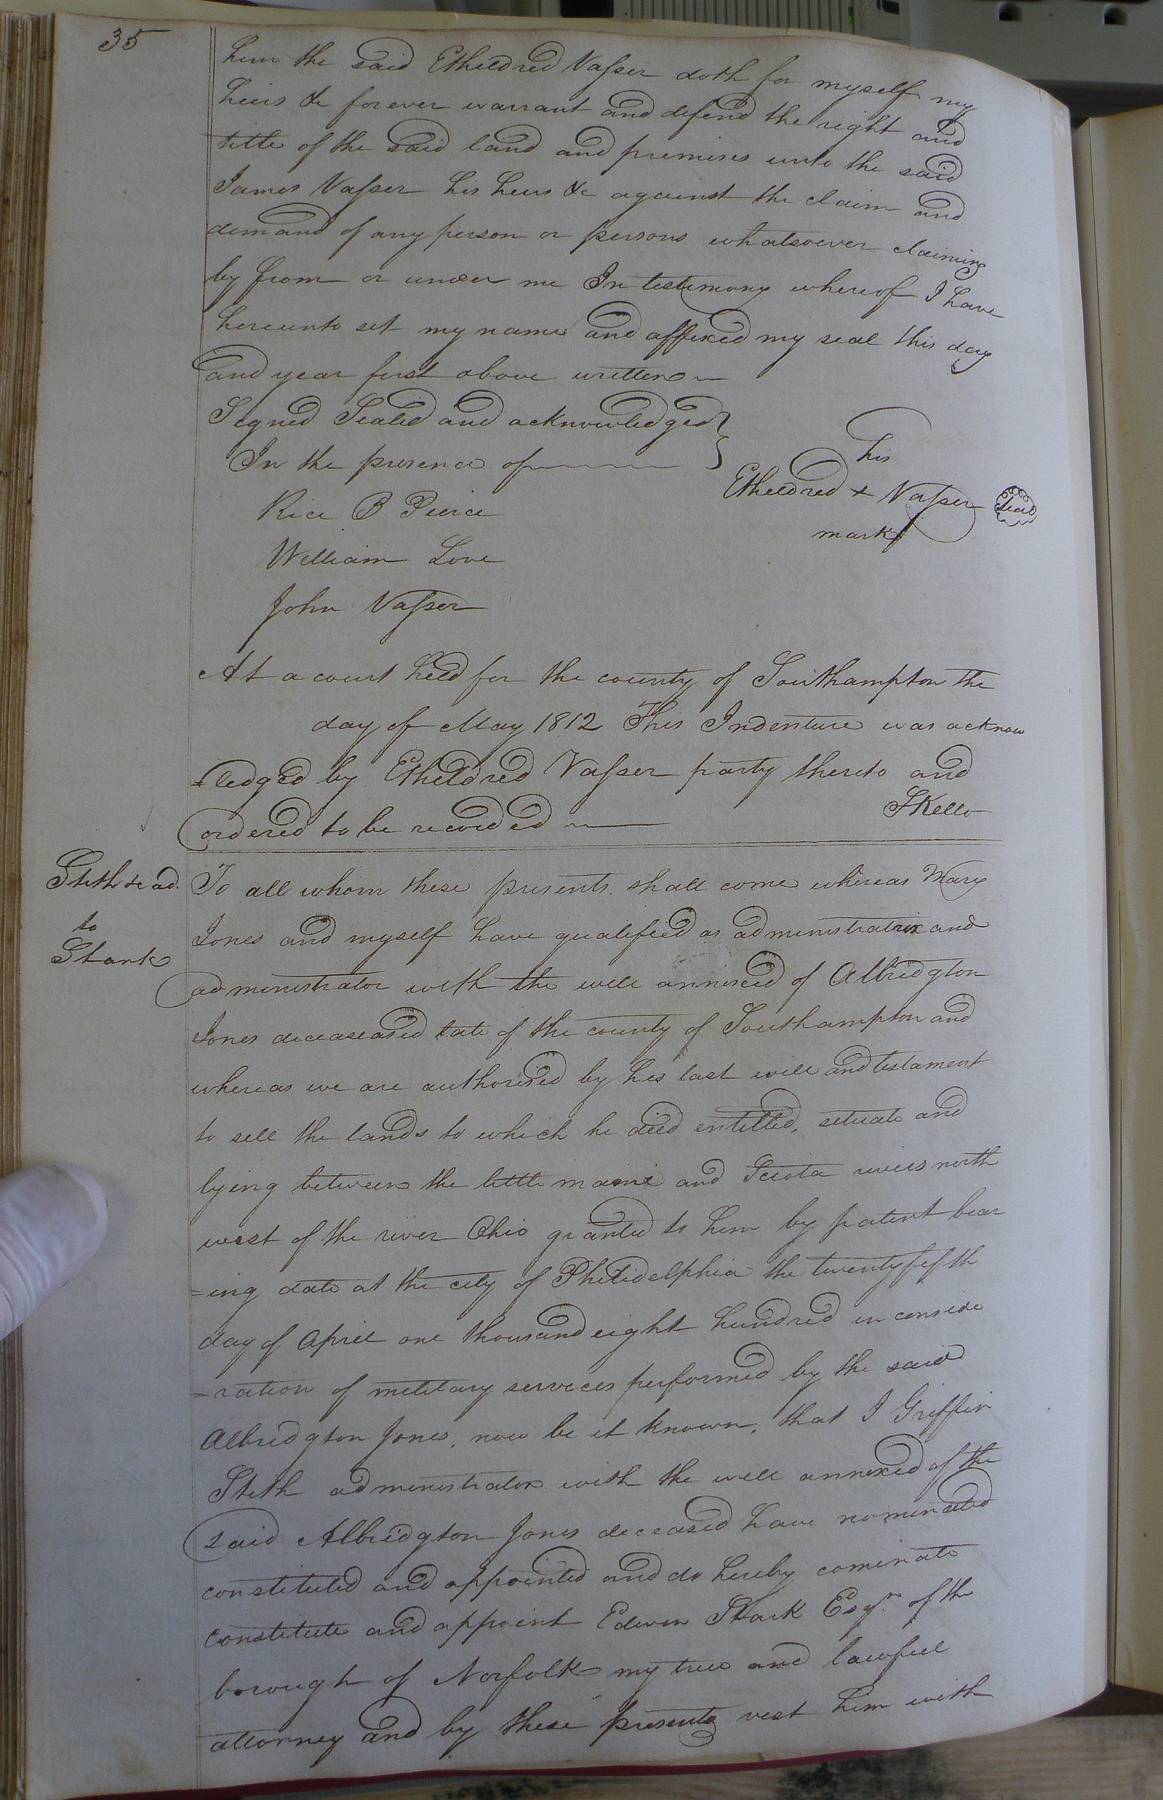 35
him the said Etheldred Vasser doth for myself my
heirs &c forever warrant and defend the right and
title of the said land and premises unto the said
James Vasser his heirs &c against the claim and
demand of any person or persons whatsoever claiming
by from or under me In testimony whereof I have
hereunto set my name and affixed my seal this day
and year first above written
Signed Sealed and acknowledged }
In the presence of
his
Etheldred + Vasser seal
mark
Rice B Pierce
William Love
John Vasser
At a court held for the county of Southampton the
day of May 1812 This Indenture was acknow
=ledged by Etheldred Vasser party thereto and
ordered to be recorded
SKello
Stith &c ad.
to
Stark
To all whom these presents shall come whereas Mary
Jones and myself have qualified as administratrix and
administrator with the will annexed of Albridgton
Jones deceased late of the county of Southampton and
whereas we are authorised by his last will and testament
to sell the lands to which he died entitled, situate and
lying between the little maimi and Sciota rivers north
west of the river Ohio granted to him by patent bear
=ing date at the city of Philidelphia the twenty fifth
day of April one thousand eight hundred in conside
=ration of military services performed by the said
Albridgton Jones, now be it known, that I Griffin
Stith administrator with the will annexed of the
said Albridgton Jones deceased have nominated
constituted and appointed and do hereby cominate
constitute and appoint Edwin Stark Esqr. of the
borough of Norfolk my true and lawful
attorney and by these presents vest him with